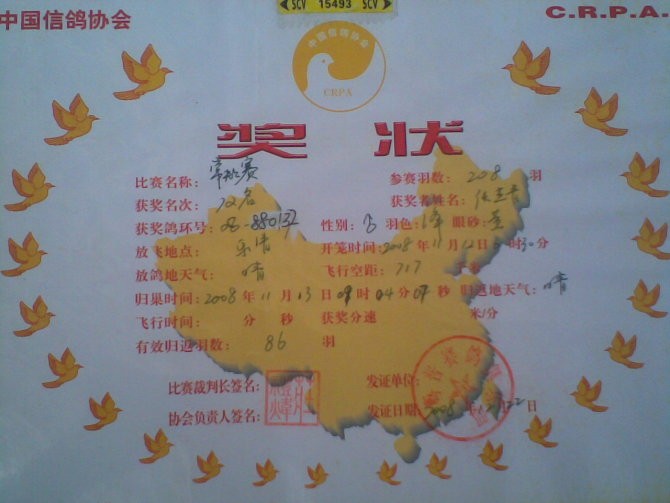 SCV 15493 SCV
中国信鸽协会 C.R.P.A.
中国信鸽协会
CRPA
奖 状
比赛名称: 常规赛 参赛羽数: 208 羽
获奖名次: 12名 获奖者姓名:
获奖鸽环号: 08-880132 性别: 羽色: 眼砂:
放飞地点: 开笼时间: 2008年11月12日 时30分
放鸽地天气: 晴 飞行空距: 717
归巢时间: 2008年11月13日09时04分07秒 归返地天气: 晴
飞行时间: 分 秒 获奖分速 米/分
有效归返羽数: 86 羽
比赛裁判长签名: 发证单位:
协会负责人签名: 发证日期: 2008 22日